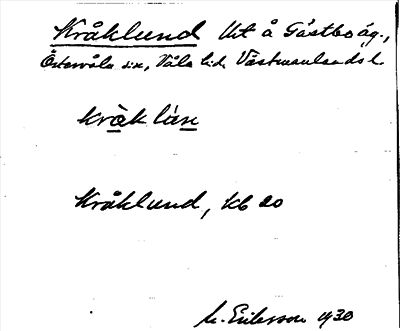 Kråklund Ut å Gästbo äg.,
Östervåla sn, Våla hd. Västmanlands l.
kråk lùn
Kråklund, kb 20
M. Eriksson 1930